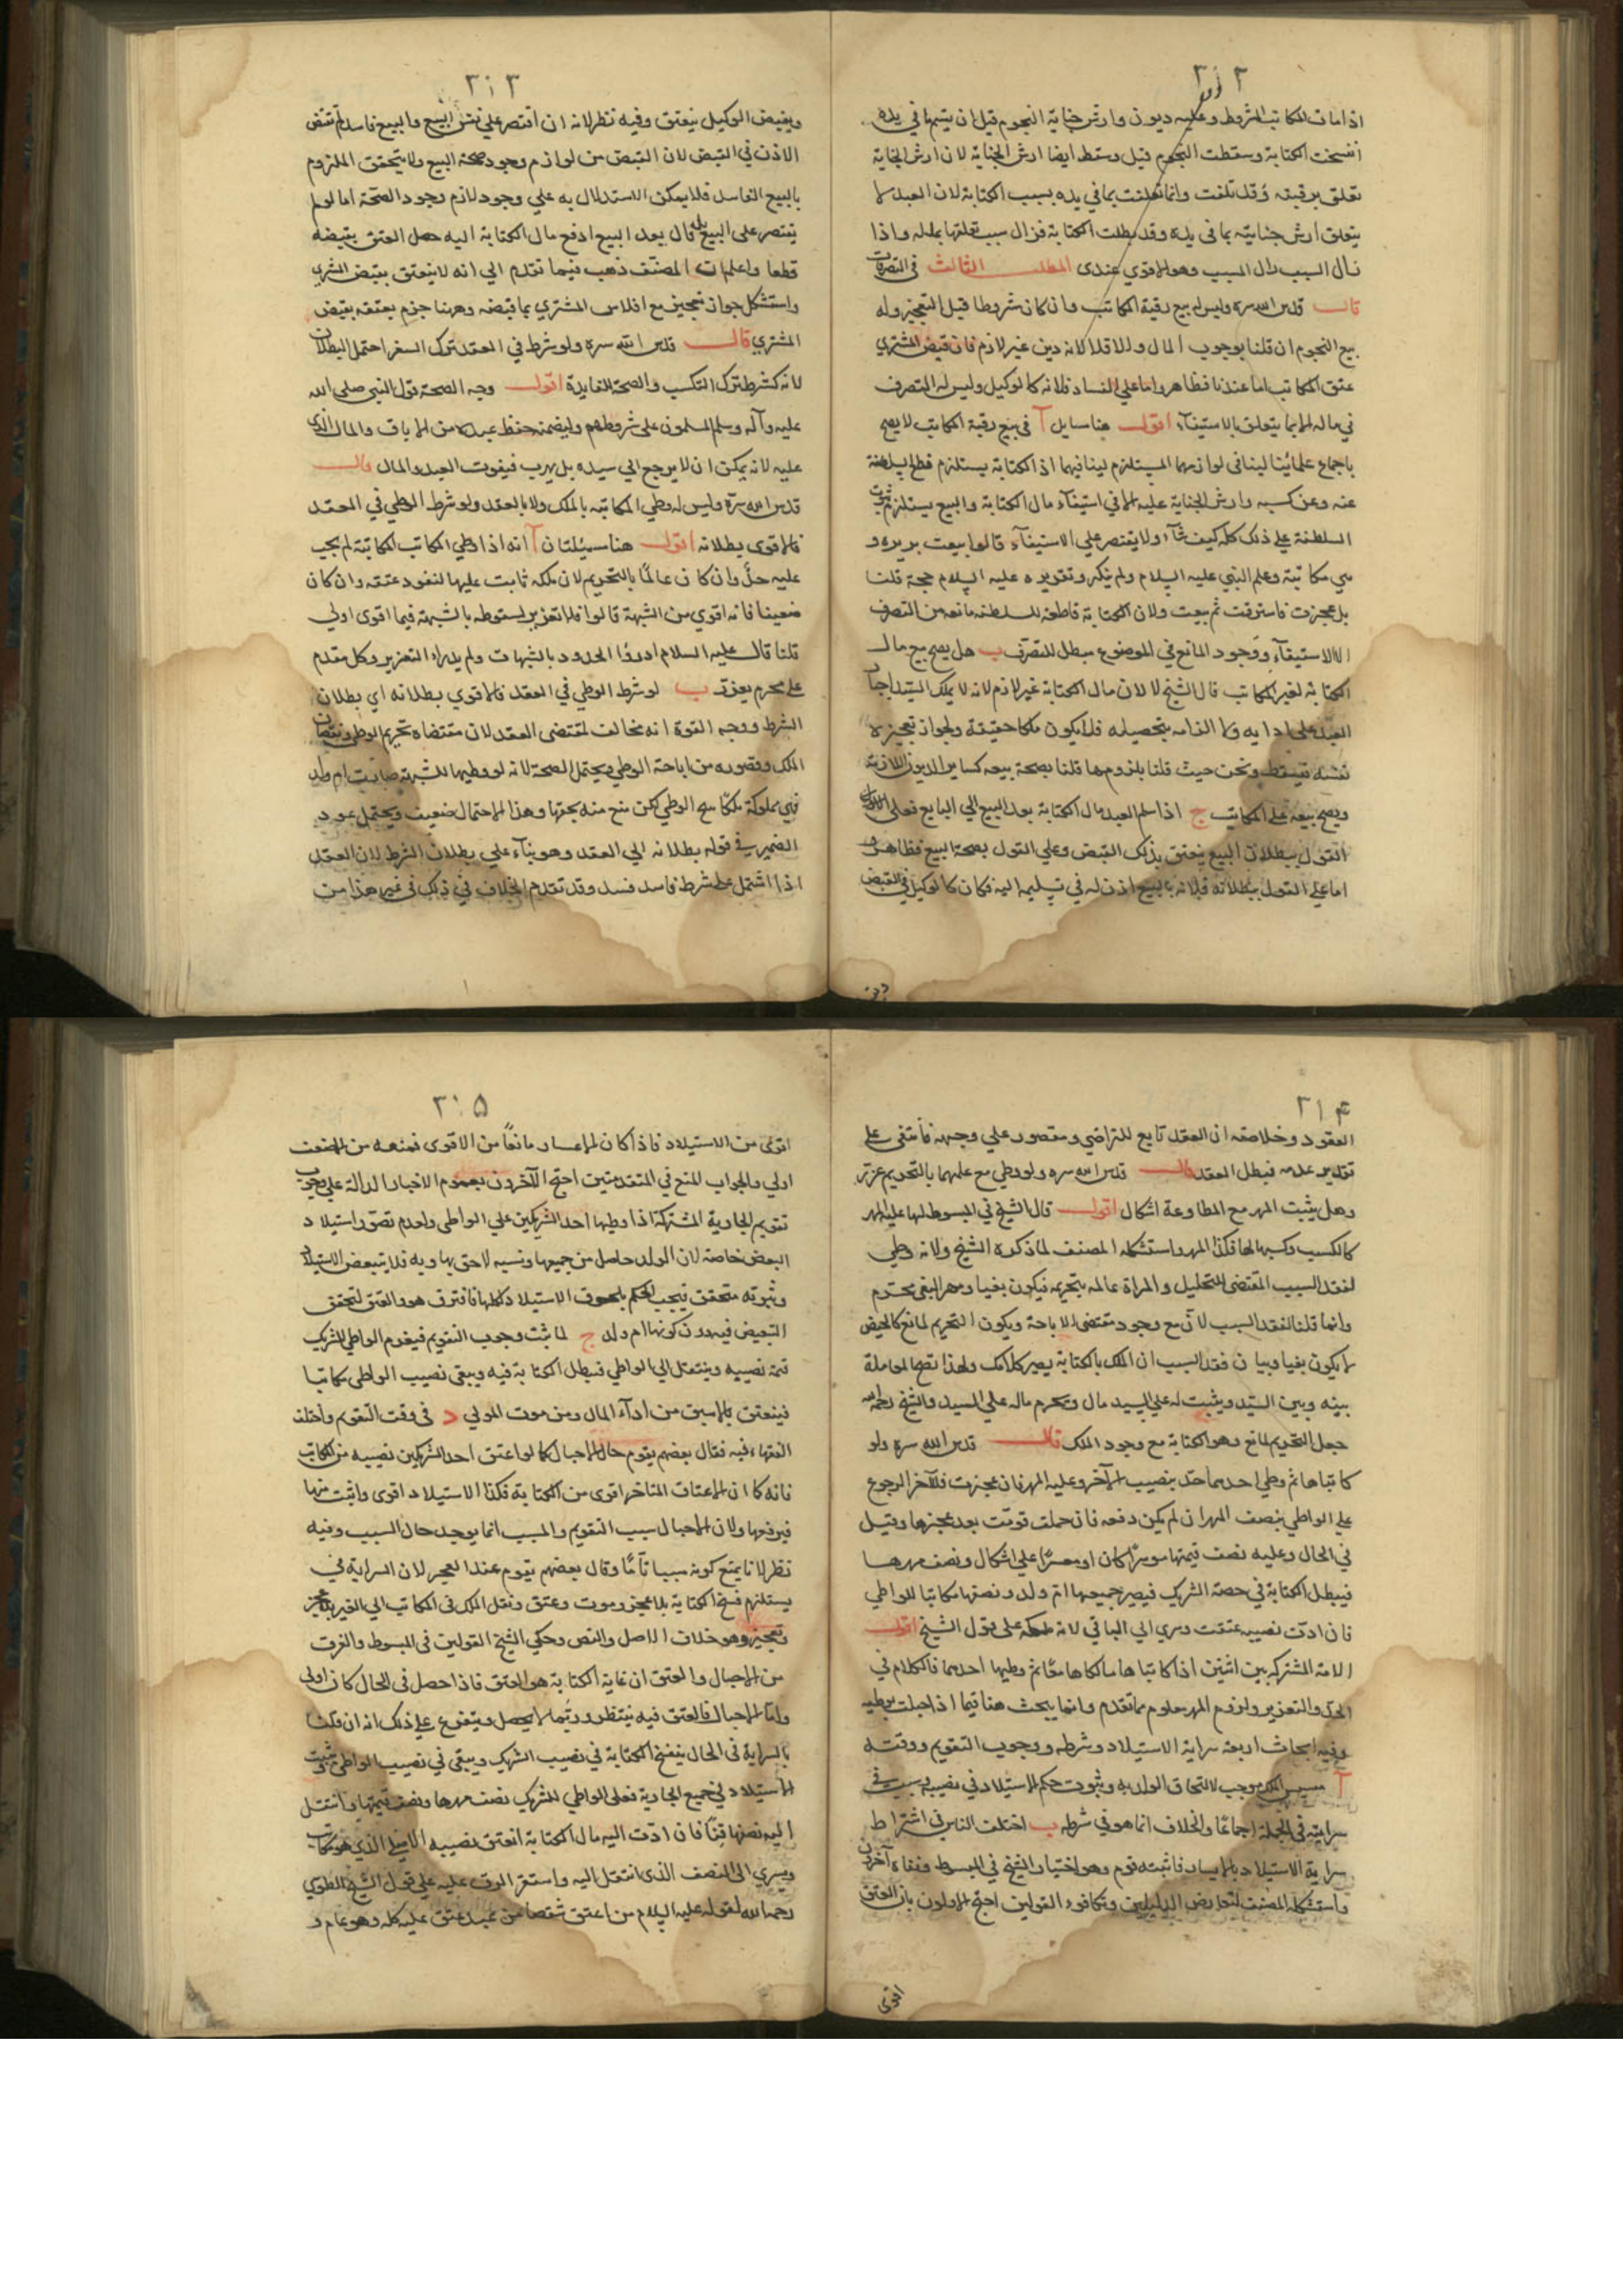 ٣١٢
اذا مات المكاتب المشروط وعليه ديون وارش جناية النجوم قبل ان يتمها في يده
انفسخت الكتابة وسقطت النجوم قيل وسقط ايضا ارش الجناية لان ارش الجناية
تعلق برقبته وقد تلفت وانما تعلقت بما في يده بسبب الكتابة لان العبد لا
يتعلق ارش جنايته بما في يده وقد بطلت الكتابة فزال سبب تعلقها بماله واذا
زال السبب زال المسبب وهو الاقوي عندى المطلب الثالث في التصرفات
قال قدس الله سره وليس له بيع رقبة المكاتب وان كان مشروطا قبل التعجيز وله
بيع النجوم ان قلنا بوجوب المال والا فلا لانه دين غير لازم فان قبض المشتري
عتق المكاتب اما عندنا فظاهر واما علي الفساد فلانه كالوكيل وليس له التصرف
في ماله الا بما يتعلق بالاستيفآء اقول هنا مسايل آ في بيع رقبة المكاتب لا يصح
باجماع علمائنا لينافى لوازمهما المستلزم لينافيهما اذ الكتابة يستلزم قطع السلطنة
عنه وعن كسبه وارش الجناية عليه الا في استيفآء مال الكتابة والبيع يستلزم ثبوت
السلطنة علي ذلك كله كيف شآء ولا يقتصر علي الاستيفآء قالوا بيعت بريره و
هي مكاتبة وعلم النبي عليه السلام ولم ينكر وتقريره عليه السلام حجة قلنا
بل عجزت فاسترقت ثم بيعت ولان الكتابة قاطعة للسلطنة مانعة من التصرف
الا الاستيفآء ووجود المانع في الموضوع مبطل للتصرف ب هل يصح بيع مال
الكتابة لغير المكاتب قال الشيخ لا لان مال الكتابة غير لازم لانه لا يملك السيد اجبار
العبد على ادايه ولا الزامه بتحصيله فلا يكون ملكا حقيقة ولجواز تعجيزه
نفسه فيسقط ونحن حيث قلنا بلزومها قلنا بصحة بيعه كساير الديون اللازمة
ويصح بيعه علي المكاتب ج اذا سلم العبد مال الكتابة بعد البيع الي البايع فعلي
القول ببطلان البيع ينعتق بذلك القبض وعلي القول بصحة البيع فظاهر
اما علي القول ببطلانه فلانه بالبيع اذن له في تسليمه اليه فكان كالوكيل في القبض
٣١٣
وبقبض الوكيل ينعتق وفيه نظر لانه ان اقتصر علي نفس البيع والبيع فاسد لم تقتض
الاذن في القبض لان القبض من لوازم وجود صحة البيع ولا يتحقق الملزوم
بالبيع الفاسد فلا يمكن الاستدلال به علي وجود لازم وجود الصحة اما لو لم
يقتصر على البيع بل قال بعد البيع ادفع مال الكتابة اليه حصل العتق بقبضه
قطعا واعلم ان المصنف ذهب فيما تقدم الي انه لا ينعتق بقبض المشتري
واستشكل جواز تعجيزه مع افلاس المشتري بما قبضه وههنا جزم بعتقه بقبض
المشتري قال قدس الله سره ولو شرط في العقد ترك السفر احتمل البطلان
لانه كشرط ترك التكسب والصحة للفايدة اقول وجه الصحة قول النبي صلى الله
عليه وآله وسلم المسلمون على شروطهم وليضمنه حفظ عبده من الاباق والمال الذي
عليه لانه يمكن ان لا يرجع الي سيده بل يهرب فيفوت العبد والمال قال
قدس الله سره وليس له وطي المكاتبة بالملك ولا بالعقد ولو شرط الوطي في العقد
فالاقوى بطلانه اقول هنا مسئلتان آ انه اذا وطي المكاتب المكاتبة لم يجب
عليه حد وان كان عالما بالتحريم لان ملكه ثابت عليها لنفوذ عتقه وان كان
ضعيفا فانه اقوي من الشبهة قالوا فلا تعزير لسقوطه بالشبهة فيما اقوى اولي
قلنا قال عليه السلام ادرؤا الحدود بالشبهات ولم يدراء التعزير وكل مقدم
علي محرم يعزر ب لو شرط الوطي في العقد فالاقوي بطلانه اي بطلان
الشرط ووجه القوة انه مخالف لمقتضى العقد لان مقتضاه تحريم الوطي ونقصان
الملك وقصوره من اباحة الوطي ويحتمل الصحة لانه لو وطيها لشبهة صارت ام ولد
فهي مملوكة ملكا يبيح الوطي لكن منع منه بحقها وهذا الاحتمال ضعيف ويحتمل عود
الضمير في قوله بطلانه الي العقد وهو بنآء علي بطلان الشرط لان العقد
اذا اشتمل علي شرط فاسد فسد وقد تقدم الخلاف في ذلك في غير هذا من
٣١۴
العقود وخلاصته ان العقد تابع للتراضي ومقصور علي وجهه فانتفى على
تقدير عدمه فبطل العقد قال قدس الله سره ولو وطي مع علمهما بالتحريم عزر
وهل يثبت المهر مع المطاوعة اشكال اقول قال الشيخ في المبسوط لها عليه المهر
كالكسب وكسبها لها فكذا المهر واستشكله المصنف لما ذكره الشيخ ولانه وطي
لفقد السبب المقتضى للتحليل والمراة عالمة بتحريمه فيكون بغيا ومهر البغى محرم
وانما قلنا لفقد السبب لان مع وجود مقتضى الاباحة ويكون التحريم لمانع كالحيض
لا يكون بغيا وبيان فقد السبب ان الملك بالكتابة يصير كلا ملك ولهذا تصح المعاملة
بينه وبين السيد ويثبت له علي السيد مال ويحرم ماله علي السيد والشيخ رحمه الله
جعل التحريم لمانع وهو الكتابة مع وجود الملك قال قدس الله سره ولو
كاتباها ثم وطي احدهما حد بنصيب الآخر وعليه المهر فان عجزت فللآخر الرجوع
علي الواطي بنصف المهر ان لم يكن دفعه فان حملت قومت بعد عجزها وقيل
في الحال وعليه نصف قيمتها موسرا كان او معسرا علي اشكال ونصف مهرها
فيبطل الكتابة في حصة الشريك فيصير جميعها ام ولد ونصفها مكاتبا للواطي
فان ادت نصيبه عتقت وسري الي الباقي لانه ملكه على قول الشيخ اقول
الامة المشتركة بين اثنين اذا كاتباها مالكاها معا ثم وطيها احدهما فالكلام في
الحد والتعزير ولزوم المهر معلوم مما تقدم وانما يبحث هنا فيما اذا حبلت بوطيه
وفيه ابحاث اربعة سراية الاستيلاد وشرطه ووجوب التقويم ووقته
آ مسيس الملك موجب لالتحاق الولد به وثبوت حكم الاستيلاد في نصيبه
سرايته في الجملة اجماعا والخلاف انما هو في شرطه ب اختلف الناس في اشتراط
سراية الاستيلاد بالايسار فاثبته قوم وهو اختيار الشيخ في المبسوط ونفاه آخرون
واستشكله المصنف لتعارض الدليلين وتكافوء القولين احتج الاولون بان العتق
اقوى
٣١۵
اقوى من الاستيلاد فاذا كان الاعسار مانعا من الاقوى فمنعه من الاضعف
اولي والجواب المنع في المتقدمتين احتج الآخرون بعموم الاخبار الدالة علي وجوب
تقويم الجارية المشتركة اذا وطيها احد الشريكين علي الواطي ولعدم تصور استيلاد
البعض خاصة لان الولد حاصل من جميعها ونسبه لاحق بها وبه فلا يتبعض الاستيلاد
وثبوته متحقق فيجب الحكم بلحوق الاستيلاد كلها فافترق هو والعتق لتحقق
التبعيض فيه دون كونها ام ولد ج لما ثبت وجوب التقويم فيقوم الواطي للشريك
قيمة نصيبه وينتقل الي الواطي فبطل الكتابة فيه ويبقى نصيب الواطي مكاتبا
فينعتق بالاسبق من ادآء المال ومن موت المولي د في وقت التقويم واختلف
الفقهاء فيه فقال بعضهم يقوم حال الاحبال كما لو اعتق احد الشريكين نصيبه من المكاتب
فانه كما ان الاعتاق المتاخر اقوى من الكتابة فكذا الاستيلاد اقوى واثبت منها
فيرفعها ولان الاحبال سبب التقويم والمسبب انما يوجد حال السبب وفيه
نظر لانا نمنع كونه سببا تاما وقال بعضهم يقوم عند العجز لان السراية في
يستلزم فسخ الكتابة بلا عجز وموت وعتق ونقل الملك في المكاتب الي الغير بلا عجز
وتعجيز وهو خلاف الاصل والنص وحكي الشيخ القولين في المبسوط والفرق
من الاحبال والعتق ان غاية الكتابة هو العتق فاذا حصل في الحال كان اولى
واما الاحبال فالعتق فيه ينتظر وربما لا يحصل ويتفرع علي ذلك انه ان قلنا
بالسراية في الحال ينفسخ الكتابة في نصيب الشريك ويبقي في نصيب الواطي ويثبت
الاستيلاد في جميع الجارية فعلى الواطي للشريك نصف مهرها ونصف قيمتها وانتقل
اليه نصفها قنا فان ادت اليه مال الكتابة انعتق نصيبه الاصلي الذي هو مكاتب
ويسري الى النصف الذى انتقل اليه واستقر الرق عليه علي قول الشيخ الطوسي
رحمه الله لقوله عليه السلام من اعتق شقصا من عبد عتق عليه كله وهو عام و